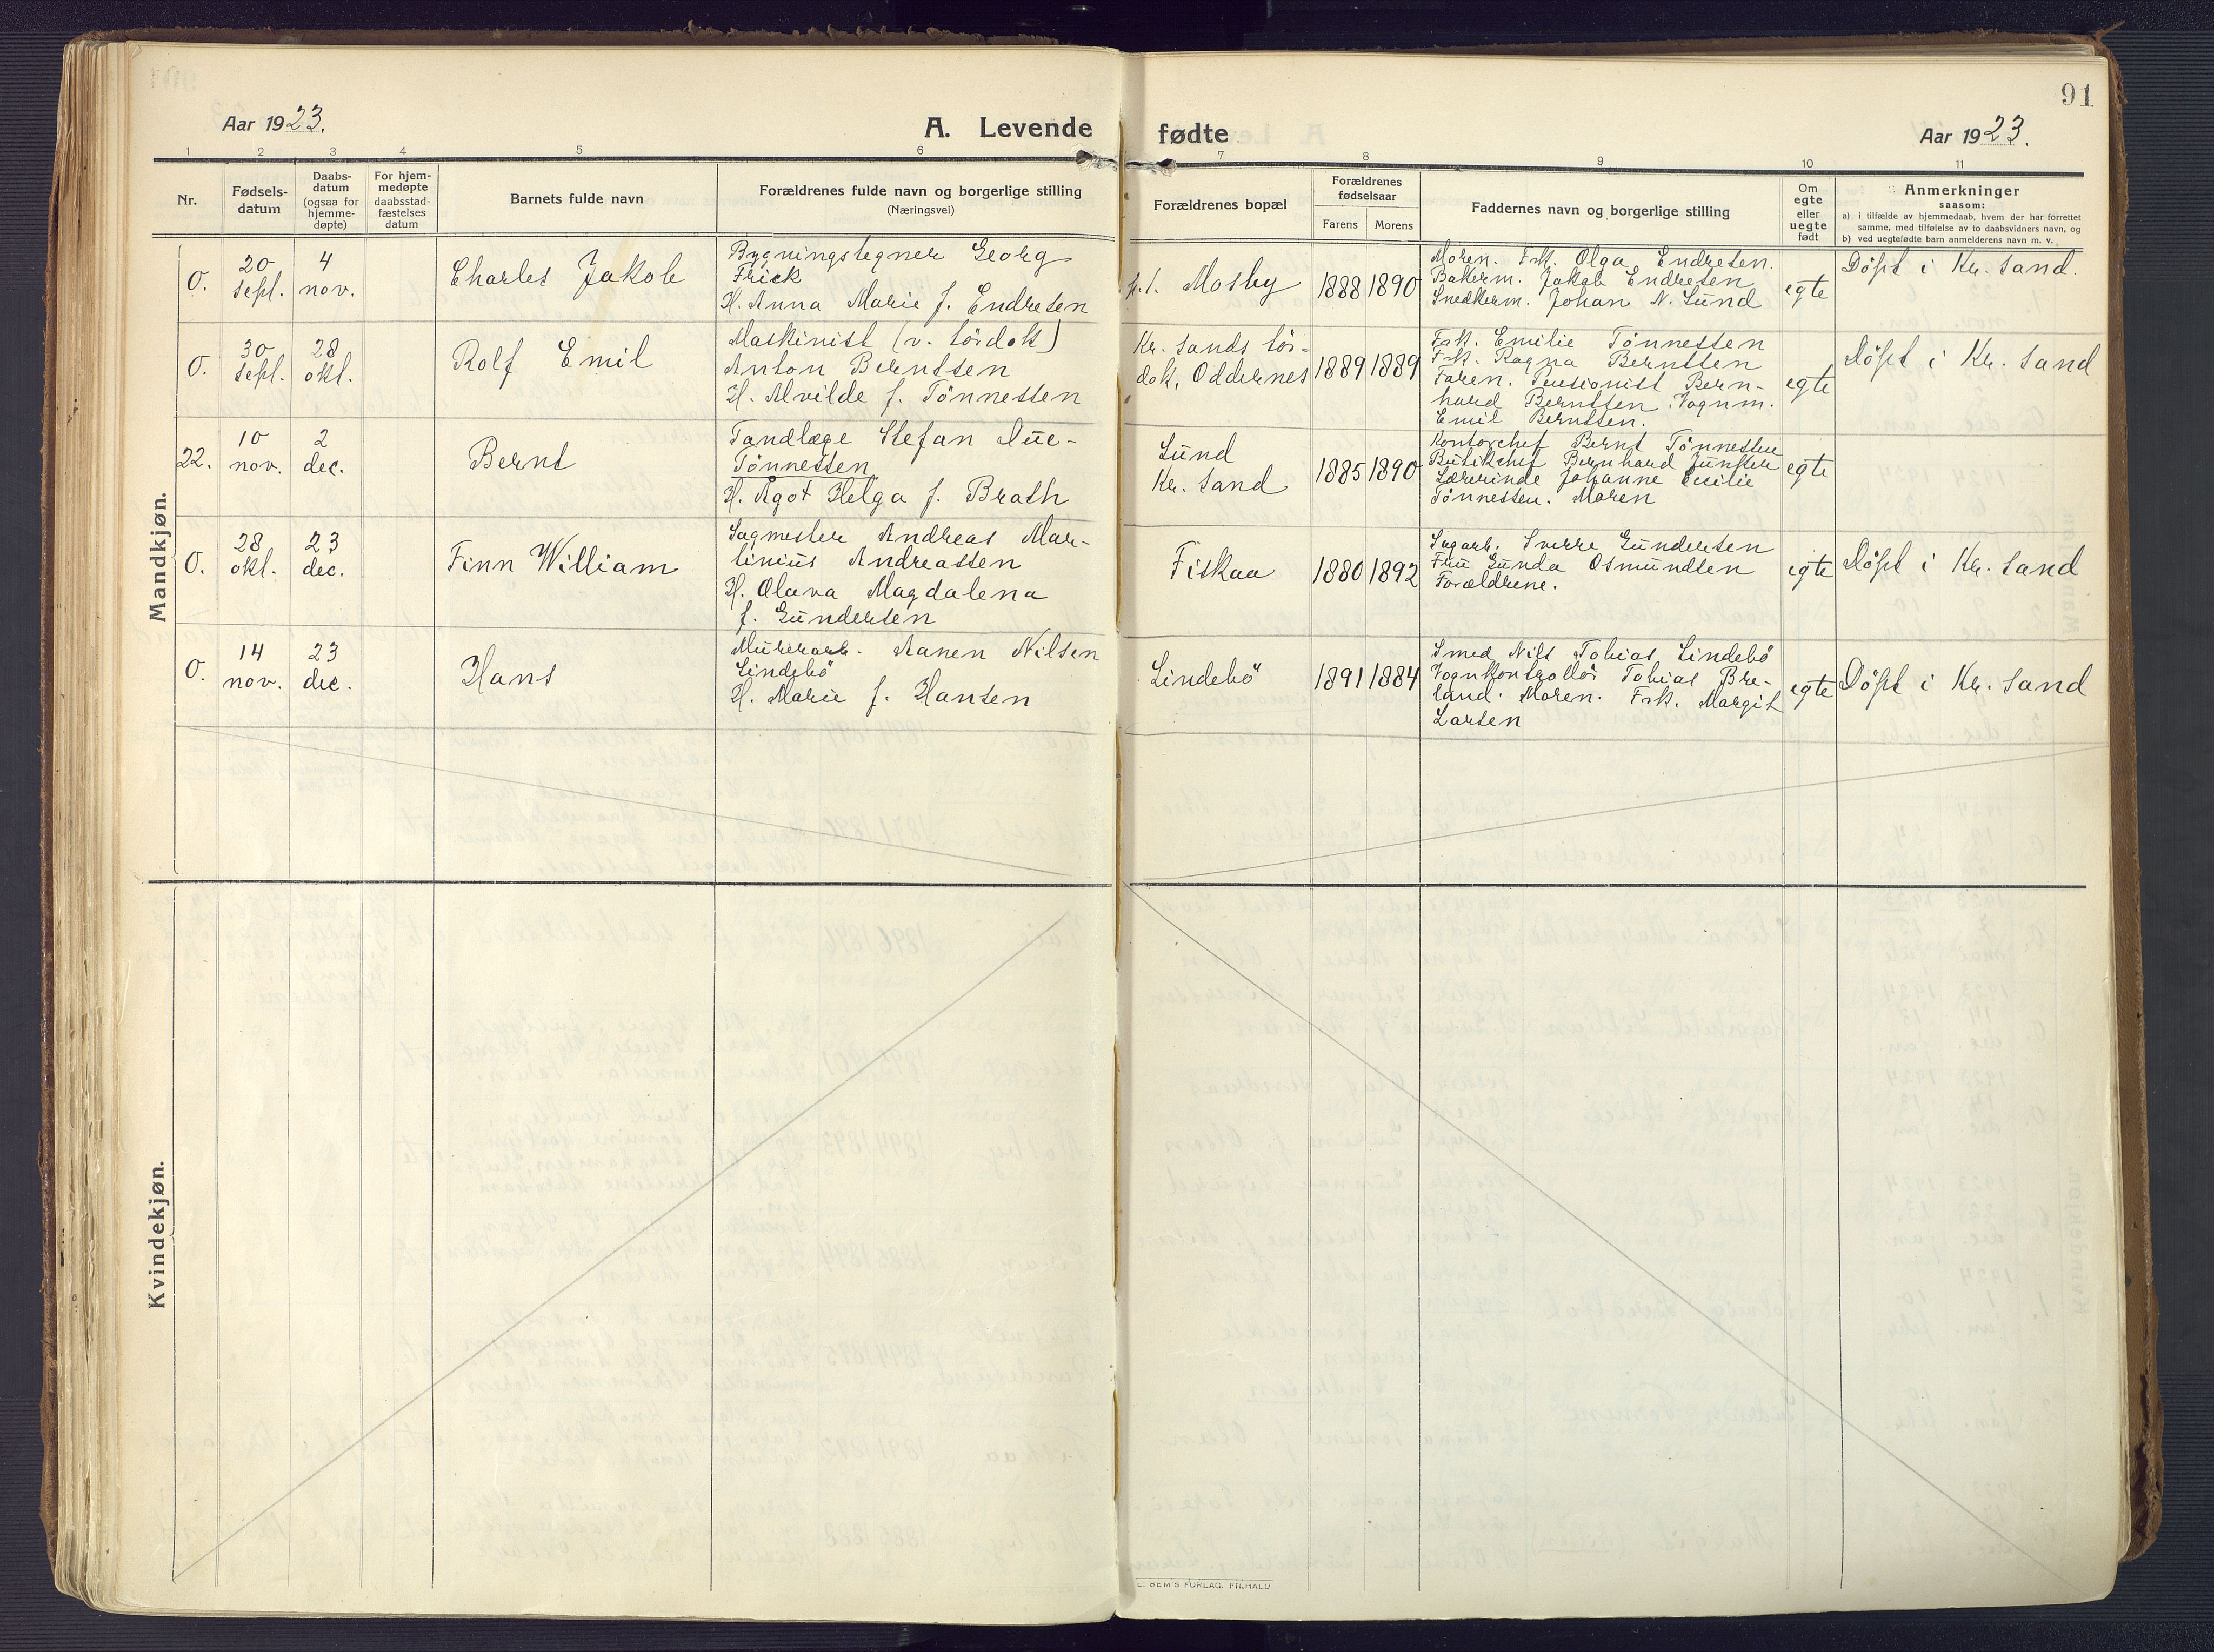 91
Aar 1923.
A. Levende fødte
Aar 1923.
1 2 3 4 5 6 7 8 9 10 11
Nr.
Fødsels-
datum
Daabs-
datum
(ogsaa for
hjemme-
døpte)
For hjem-
medøpte
daabsstad-
fæstelses
datum
Barnets fulde navn
Forældrenes fulde navn og borgerlige stilling
(Næringsvei)
Forældrenes bopæl
Forældrenes
fødselsaar
Farens Morens
Faddernes navn og borgerlige stilling
Om
egte
eller
uegte
født
Anmerkninger
saasom:
a) i tilfælde av hjemmedaab, hvem der har forrettet
samme, med tilføielse av to daabsvidners navn, og
b) ved uegtefødte barn anmelderens navn m. v.
Mandkjøn.
0.
20
sept.
4
nov.
Charles Jakob
Bygningstegner Georg
Frick
H. Anna Marie f. Endresen
p.t. Mosby
1888 1890
Moren. Frk. Olga Endresen.
Bakerm. Jakob Endresen
Snedkerm. Johan N. Lund
egte
Døpt i Kr. sand.
0.
30
sept.
28
okt.
Rolf Emil
Maskinist (v. tördok)
Anton Berntsen
H. Alvilde f. Tönnessen
Kr. sands tör-
dok, Oddernes
1889 1889
Frk. Emilie Tönnessen
Frk. Ragna Berntsen
Faren. Pensionist Bern-
hard Berntsen. Vognm.
Emil Berntsen.
egte
Döpt i Kr. sand
22.
10
nov.
2
dec.
Bernt
Tandlæge Stefan Due-
Tönnessen
H. Agot Helga f. Brath
Lund
Kr. sand
1885 1890
Kontorchef Bernt Tönnessen
Butikchef Bernhard Junsen
Lærerinde Johanne Cecilie
Tönnessen. Moren
egte
0.
28
okt.
23
dec.
Finn William
Sagmester Andreas Mar-
tinius Andreassen
H. Olava Magdalena
f. Gundersen
Fiskaa
1880 1892
Sagarb. Sverre Gundersen
Fru Gunda Osmundsen
Forældrene.
egte
Döpt i Kr. sand
0.
14
nov.
23
dec.
Hans
Murerarb. Aanen Nilsen
Lindebö
H. Marie f. Hansen
Lindebö
1891 1884
Smed Nils Tobias Lindebö
Vognkontrollör Tobias Bre-
land. Moren. Frk. Margit
Larsen
egte
Döpt i Kr. sand
Kvindekjøn.